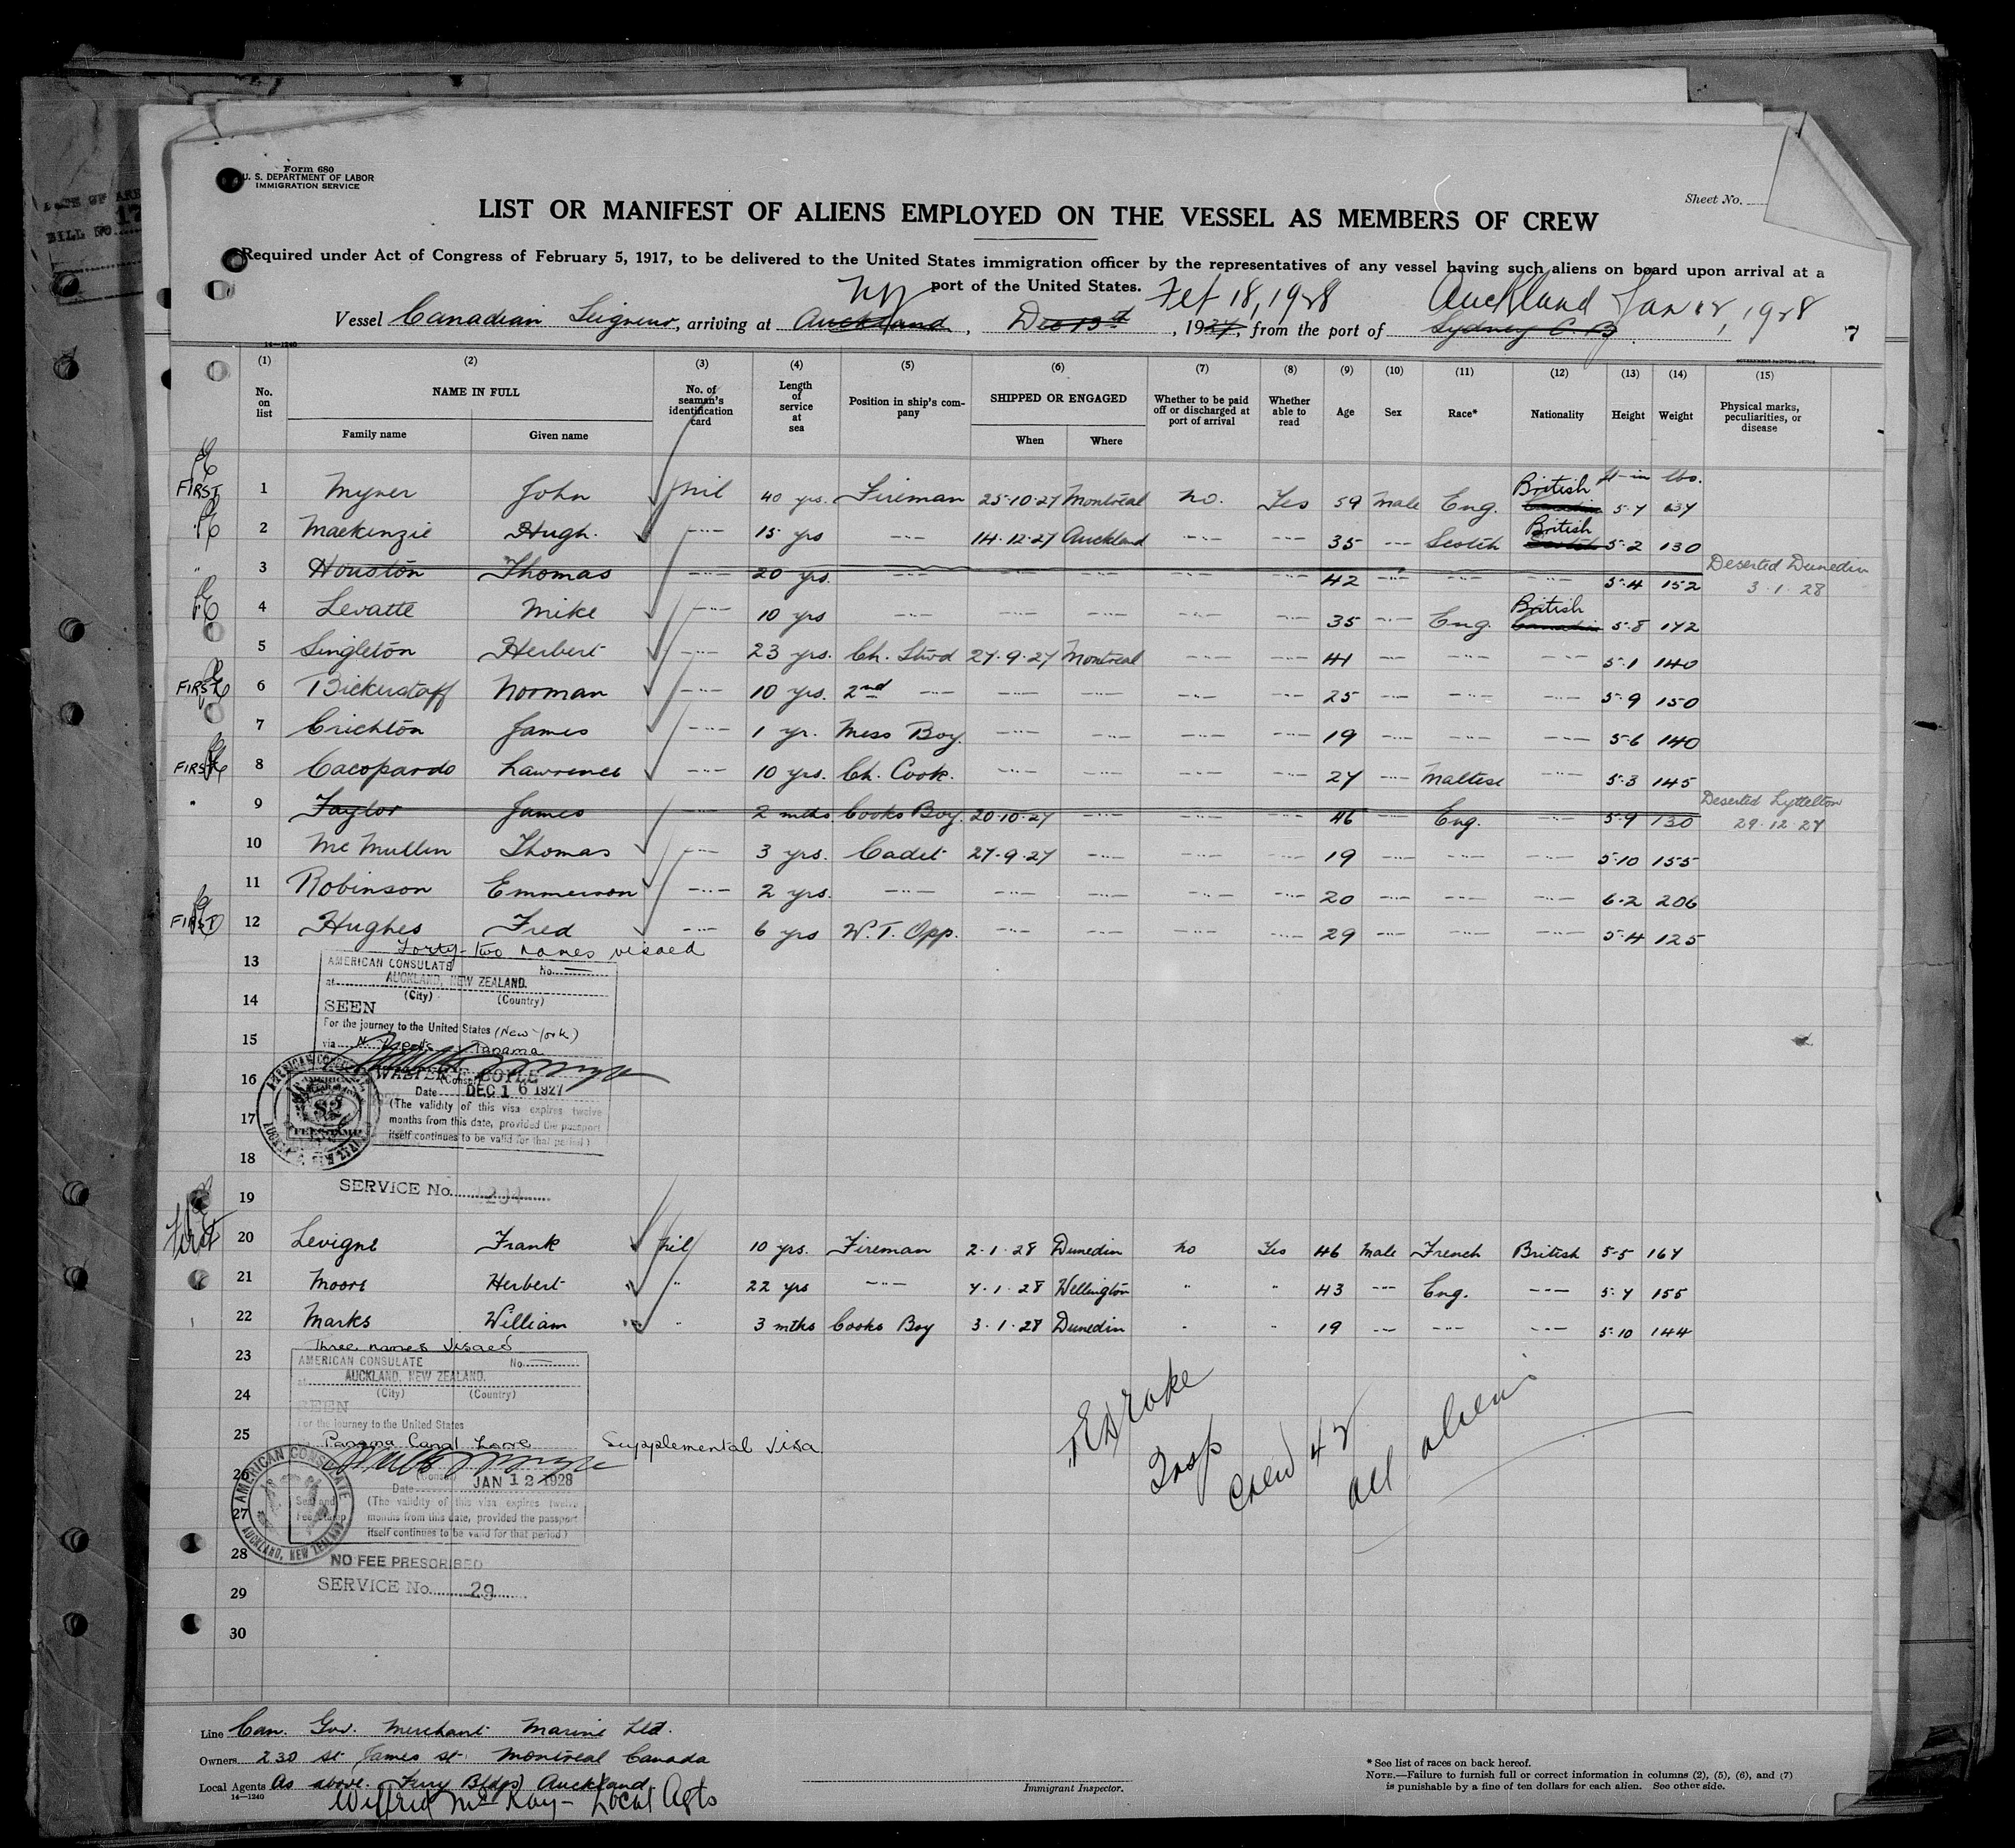 Form 680
U. S. DEPARTMENT OF LABOR
IMMIGRATION SERVICE
Sheet No.
LIST OR MANIFEST OF ALIENS EMPLOYED ON THE VESSEL AS MEMBERS OF CREW
Required under Act of Congress of February 5, 1917, to be delivered to the United States immigration officer by the representatives of any vessel having such aliens on board upon arrival at a
port of the United States.
NY Feb 18, 1928 Auckland Jan 12, 1928
Vessel Canadian Seigneur, arriving at Auckland, Dec 13th, 1927, from the port of Sydney C. B
14—1240
(1) (2) (3) (4) (5) (6) (7) (8) (9) (10) (11) (12) (13) (14) (15)
No. on list NAME IN FULL No. of seaman's identification card Length of service at sea Position in ship's company SHIPPED OR ENGAGED Whether to be paid off or discharged at port of arrival Whether able to read Age Sex Race* Nationality Height Weight Physical marks, peculiarities, or disease
Family name Given name When Where
ft-in lbs.
FIRST 1 Myner John nil 40 yrs. Fireman 25-10-27 Montreal No. Yes 59 Male Eng. British Canadian 5-7 137
2 Mackenzie Hugh. -"- 15 yrs -"- 14-12-27 Auckland -"- -"- 35 -"- Scotch British Scotch 5-2 130
3 Houston Thomas -"- 20 yrs. -"- -"- -"- -"- -"- 42 -"- -"- -"- 5-4 152 Deserted Dunedin
3.1.28
4 Levatte Mike -"- 10 yrs -"- -"- -"- -"- -"- 35 -"- Eng. British Canadian 5-8 172
5 Singleton Herbert -"- 23 yrs. Ch. Stwd 27-9-27 Montreal -"- -"- 41 -"- -"- -"- 5-1 140
FIRST 6 Bickerstaff Norman -"- 10 yrs. 2nd -"- -"- -"- -"- -"- 25 -"- -"- -"- 5-9 150
7 Crichton James -"- 1 yr. Mess Boy. -"- -"- -"- -"- 19 -"- -"- -"- 5-6 140
FIRST 8 Cacopardo Lawrence -"- 10 yrs. Ch. Cook. -"- -"- -"- -"- 27 -"- Maltese -"- 5-3 145
" 9 Taylor James -"- 2 mths Cooks Boy. 20-10-27 -"- -"- -"- 46 -"- Eng. -"- 5-9 130 Deserted Lyttelton
29.12.27
10 Mc Mullin Thomas -"- 3 yrs. Cadet 27-9-27 -"- -"- -"- 19 -"- -"- -"- 5-10 155
11 Robinson Emmerson -"- 2 yrs. -"- -"- -"- -"- -"- 20 -"- -"- -"- 6-2 206
FIRST 12 Hughes Fred -"- 6 yrs W. T. Opp. -"- -"- -"- -"- 29 -"- -"- -"- 5-4 125
Forty-two names visaed
13 AMERICAN CONSULATE No.
at AUCKLAND, NEW ZEALAND.
14 (City) (Country)
SEEN
For the journey to the United States (New York)
15 via Panama
16 WALTER F. BOYLE
(Consul)
Date DEC 16 1927
17 (The validity of this visa expires twelve
months from this date, provided the passport
itself continues to be valid for that period)
18
19 SERVICE No.
First 20 Levigne Frank nil 10 yrs. Fireman 2-1-28 Dunedin No Yes 46 Male French British 5-5 167
21 Moore Herbert " 22 yrs -"- 7-1-28 Wellington " " 43 -"- Eng. -"- 5-7 155
22 Marks William " 3 mths Cooks Boy 3-1-28 Dunedin " " 19 -"- -"- -"- 5-10 144
Three names visaed
23 AMERICAN CONSULATE No.
AUCKLAND, NEW ZEALAND.
24 (City) (Country)
SEEN
For the journey to the United States
25 Panama Canal Zone Supplemental Visa
26 (Consul)
Date JAN 12 1928
27 (The validity of this visa expires twelve
months from this date, provided the passport
itself continues to be valid for that period)
AMERICAN CONSULATE
AUCKLAND, NEW ZEALAND
Seal and
Fee Stamp
28 NO FEE PRESCRIBED
29 SERVICE No. 29
30
Insp
Crew 42
all aliens
Line Can. Gov. Merchant Marine Ltd.
Owners 230 St James St. Montreal Canada
Local Agents As above. Ferry Bldgs Auckland.
14—1240
Wilfrid McKay - Local Agts
Immigrant Inspector.
* See list of races on back hereof.
NOTE.—Failure to furnish full or correct information in columns (2), (5), (6), and (7)
is punishable by a fine of ten dollars for each alien. See other side.